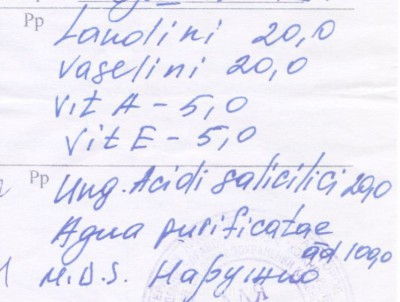 Рр Lanolini 20,0
Vaselini 20,0
Vit A - 5,0
Vit E - 5,0
Рр Ung. Acidi salicilici 20,0
Aqua purificatae
ād 100,0
M.D.S. Наружно